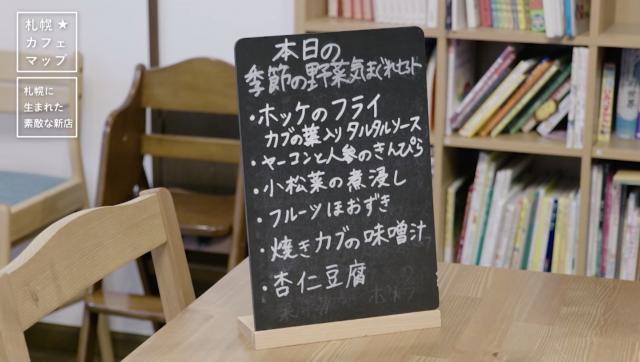 札幌★
カフェ
マップ
札幌に
生まれた
素敵な新店
本日の
季節の野菜気まぐれセット
・ホッケのフライ
カブの葉入りタルタルソース
・ヤーコンと人参のきんぴら
・小松菜の煮浸し
・フルーツほおずき
・焼きカブの味噌汁
・杏仁豆腐